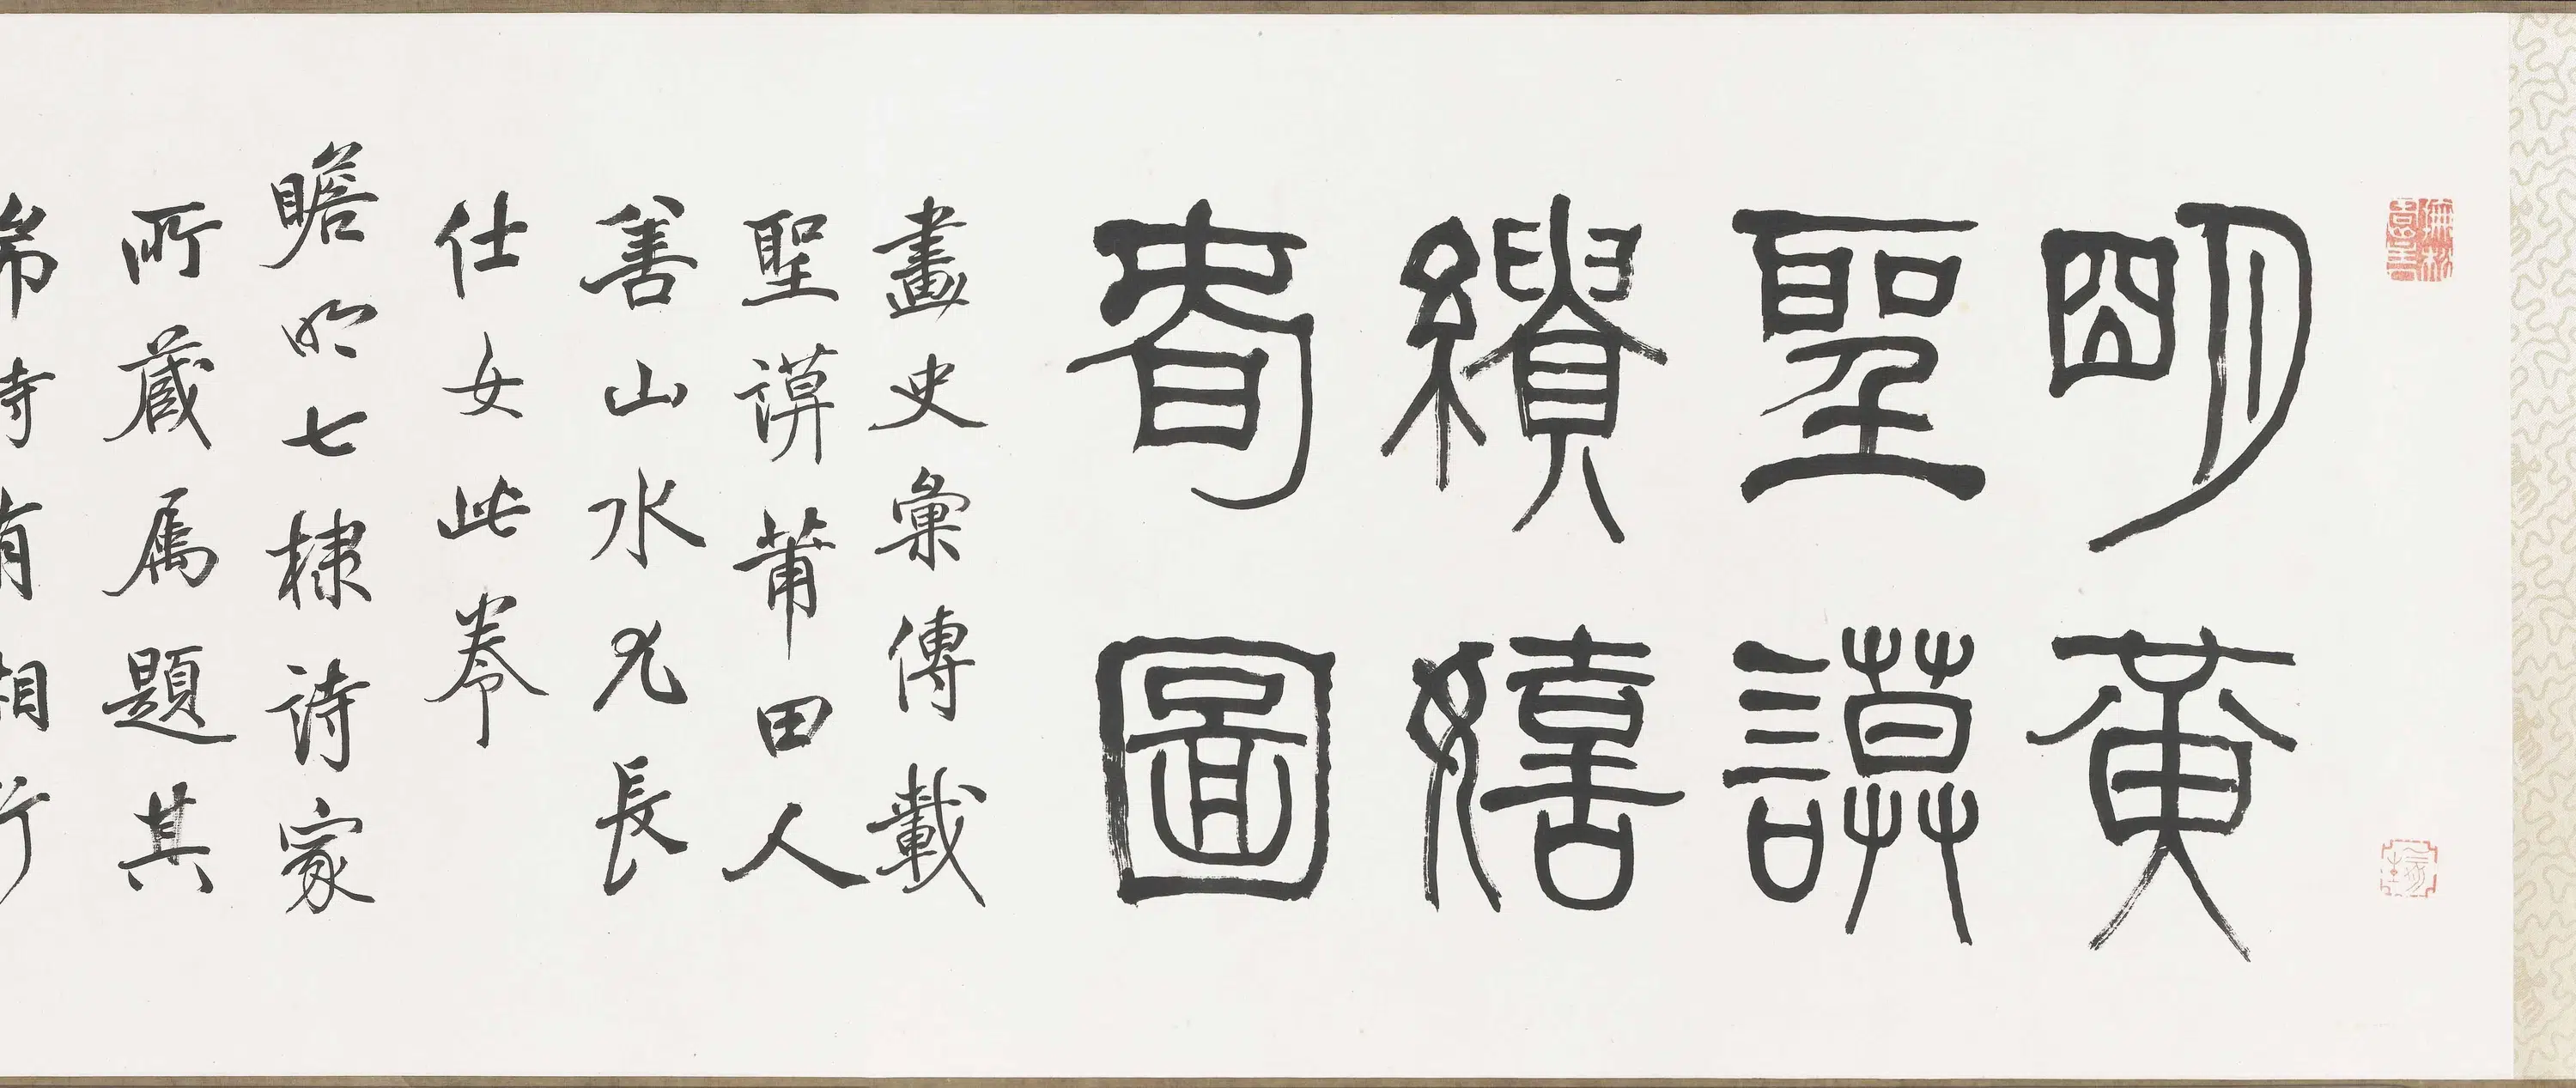 明黃
聖謨
繢嬉
春圖
畫史彙傳載
聖謨莆田人
善山水尤長
仕女此卷
瞻明七棣詩家
所藏屬題其